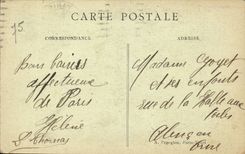 CARTE POSTALE
CORRESPONDANCE
ADRESSE
Bons baisers
affectueux
de Paris
Hélène
St Thomas
Madame
et ses enfants
rue de la Halle aux
toiles
Alençon
Orne